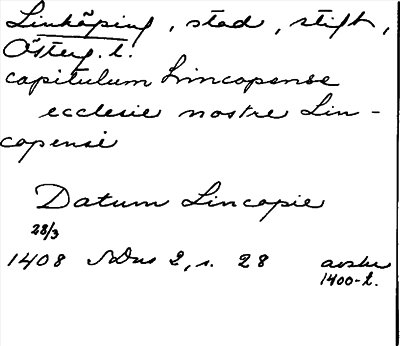 Linköping, stad, stift,
Österg. l.
capitulum Lincopense
ecclesie nostre Lin-
copensi
Datum Lincopie
28/3
1408 SDns 2, s. 28 avskr
1400-t.